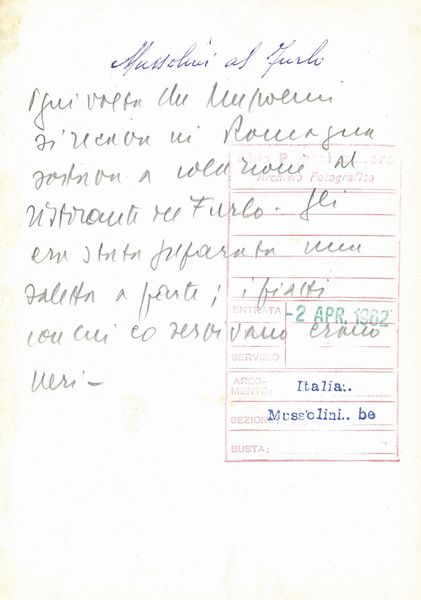 Mussolini al Furlo
Ogni volta che Mussolini
si recava in Romagna
sostava a colazione al
ristorante del Furlo. Gli
era stata preparata una
saletta a parte; i piatti
con cui lo servivano erano
neri -
Archivio Fotografico
ENTRATA -2 APR. 1962
SERVIZIO
ARGO-
MENTO: Italia..
SEZIONE: Mussolini.. be
BUSTA;